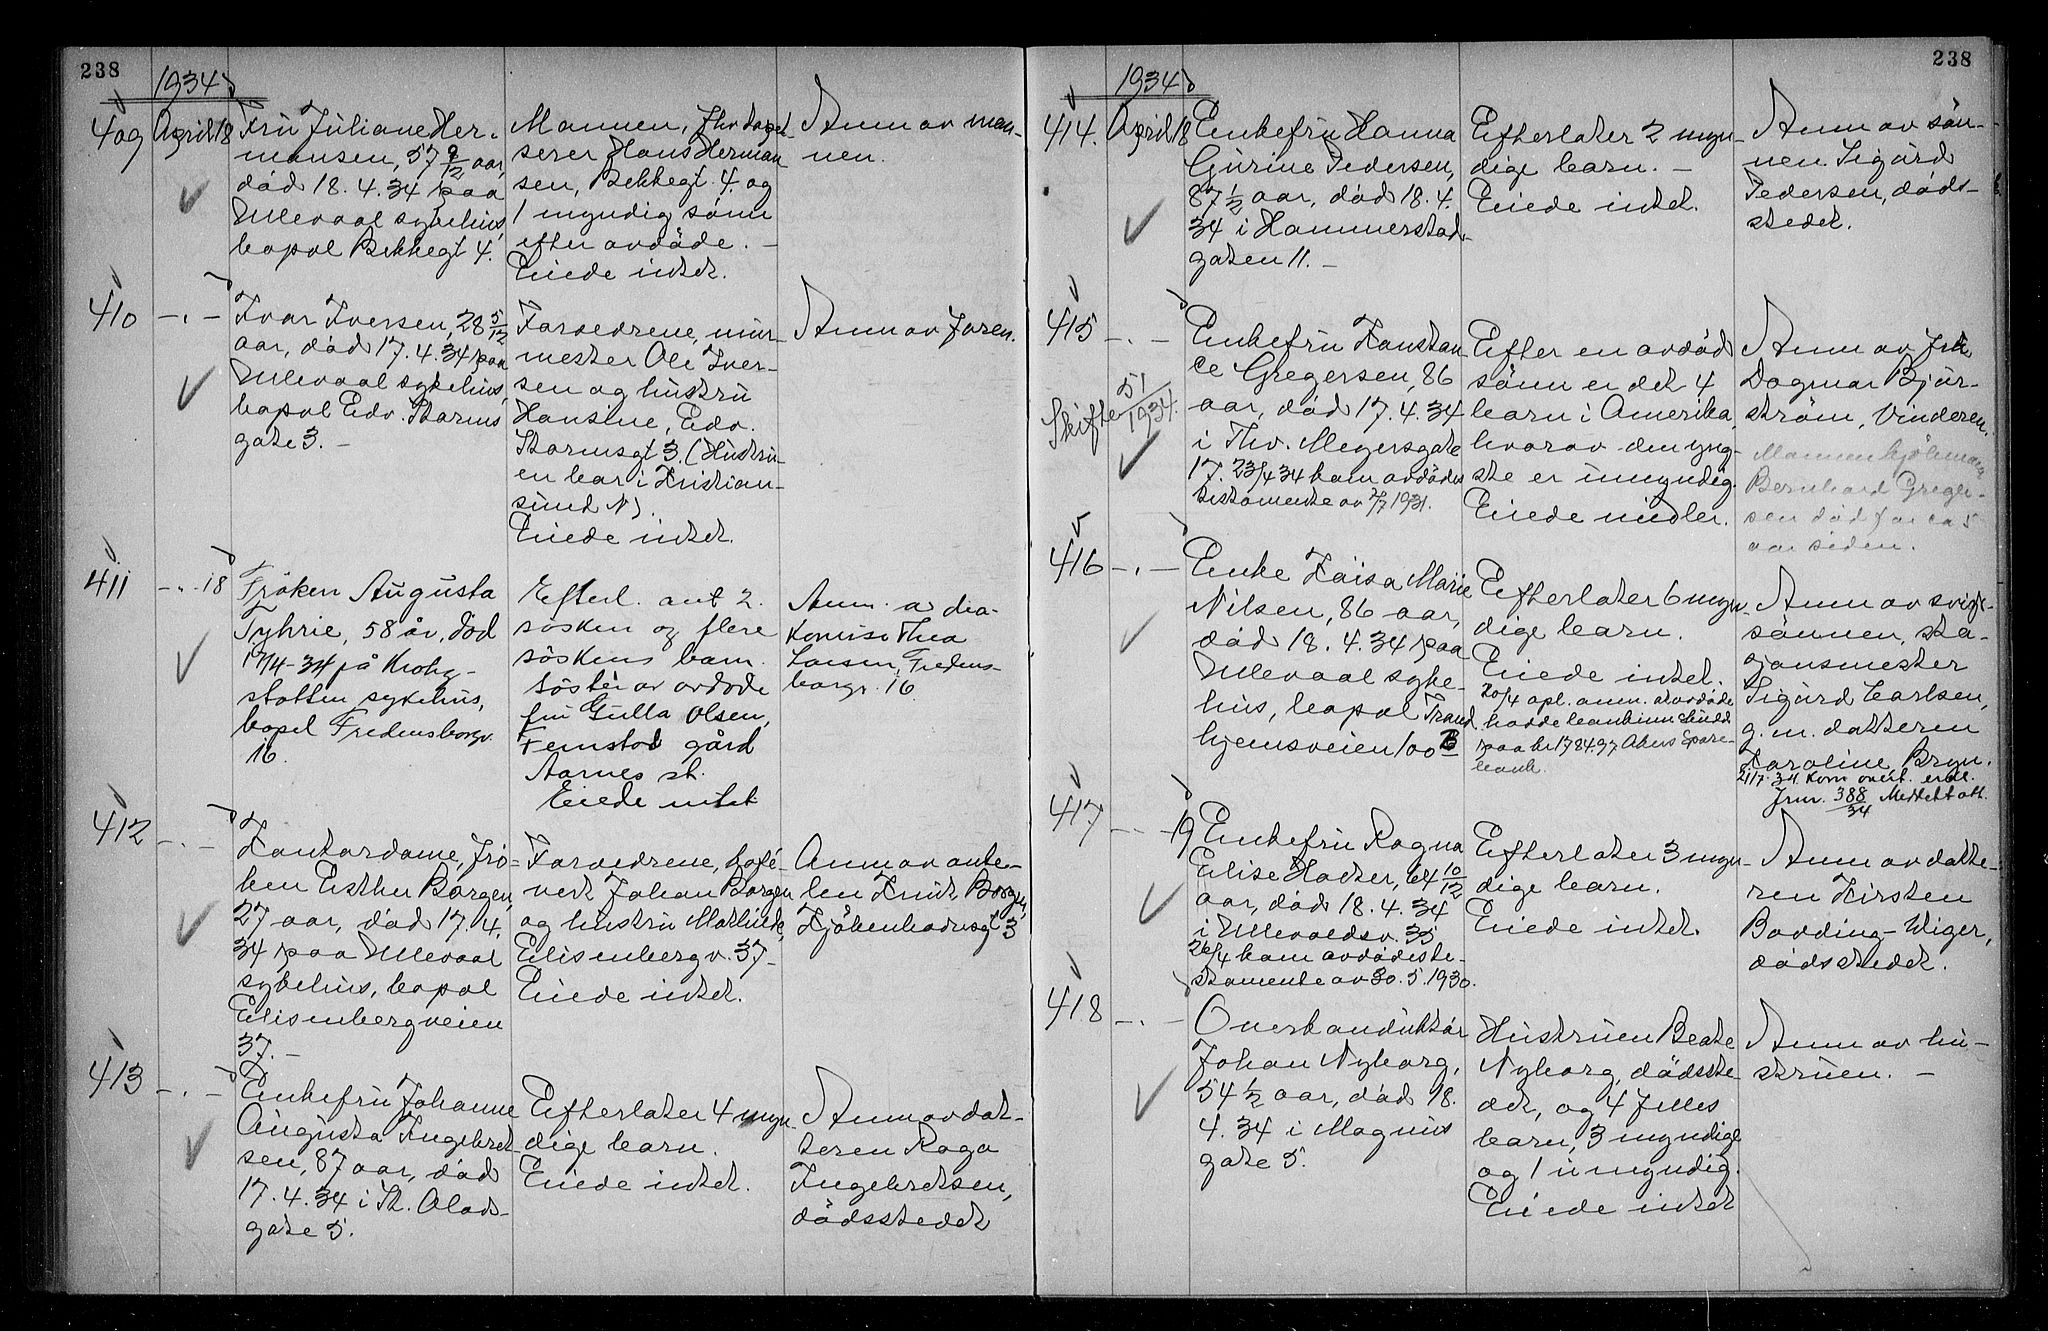 238
1934
409 April 18 Fru Juliane Her-
mansen, 57 9/12 aar,
død 18.4.34 paa
Ullevaal sykehus,
bopæl Bekkegt 4.
Mannen,
serer Hans Herman-
sen, Bekkegt. 4. og
1 myndig sønn
efter avdøde. -
Eiede intet.
Anm av man-
nen.
410 -"- Ivar Iversen, 28 5/12
aar, død 17.4.34 paa
Ullevaal sykehus,
bopæl Edv. Storms
gate 3. -
Forældrene, mur-
mester Ole Iver-
sen og hustru
Hansine, Edv.
Stormsgt 3. (Hustru-
en bor i Kristian-
sund N).
Eiede intet.
Anm av faren.
411 -"- 18 Frøken Augusta
Tyhrie, 58 år, død
17/4-34 på Krohg-
støtten sykehus,
bopel Fredensborgv.
16.
Efterl. ant 2.
søsken og flere
søskens barn.
søster av avdøde
fru Gulla Olsen,
Femstad gård
Aarnes st.
Eiede intet
Anm. a dia-
konisse Thea
Larsen, Fredens-
borgv. 16
412 -"- Kontordame, frø-
ken Esther Borgen,
27 aar, død 17.4.
34 paa Ullevaal
sykehus, bopæl
Elisenbergveien
37. -
Forældrene, kafé-
vert Johan Borgen
og hustru Mathilde,
Elisenbergv. 37 -
Eiede intet.
Anm av onke-
len Knut Borgen,
Kjøbenhavnsgt 3
413 -"- Enkefru Johanne
Augusta Ingebret-
sen, 87 aar, død
17.4.34 i St. Olavs-
gate 5.
Efterlater 4 myn-
dige barn.
Eiede intet.
Anm av dat-
teren Raga
Ingebretsen,
dødsstedet
238
1934
414. April 18 Enkefru Hanna
Gurine Pedersen,
87 1/2 aar, død 18.4.
34 i Hammerstads-
gaten 11. -
Efterlater 2 myn-
dige barn. -
Eiede intet.
Anm av søn-
nen Sigurd
Pedersen, døds-
stedet.
415 -"- Enkefru Konstan-
ce Gregersen, 86
aar, død 17.4.34
i Thv. Meyersgate
17. 23/4 34 kom avdødes
testamente av 2/7 1931.
Skifte 51/1934.
Efter en avdød
sønn er det 4
barn i Amerika,
hvorav den yng-
ste er umyndig.
Eiede midler.
Anm av frk
Dagmar Bjør-
strøm, Vinderen.
Mannen
Bernhard Greger-
sen død for ca 5
aar siden.
416 -"- Enke Kaisa Marie
Nilsen, 86 aar,
død 18.4.34 paa
Ullevaal syke-
hus, bopæl Trond-
hjemsveien 100 B
Efterlater 6 myn-
dige barn.
Eiede intet.
20/4 opl. anm. at avdøde
hadde bankinnskudd
paa kr 1784.97 Akers Spare-
bank.
Anm av svige-
sønnen, sta-
sjonsmester
Sigurd Carlsen,
g.m. datteren
Karoline, Bryn.
21/7-34 kom
Jrnr. 388/34
417 -"- 19 Enkefru Ragna
Elise Hoelser, 64 10/12
aar, død 18.4.34
i Ullevoldsv. 35
26/4 kom avdødes te-
stamente av 30.5.1930.
Efterlater 3 myn-
dige barn.
Eiede intet.
Anm av datte-
ren Kirsten
Bodding-Wiger,
dødsstedet.
418 -"- Overkonduktør
Johan Nyborg,
54 1/2 aar, død 18.
4.34 i Magnus
gate 5.
Hustruen Beate
Nyborg, dødsste-
det, og 4 felles
barn, 3 myndige
og 1 umyndig.
Eiede intet
Anm av hu-
struen. -